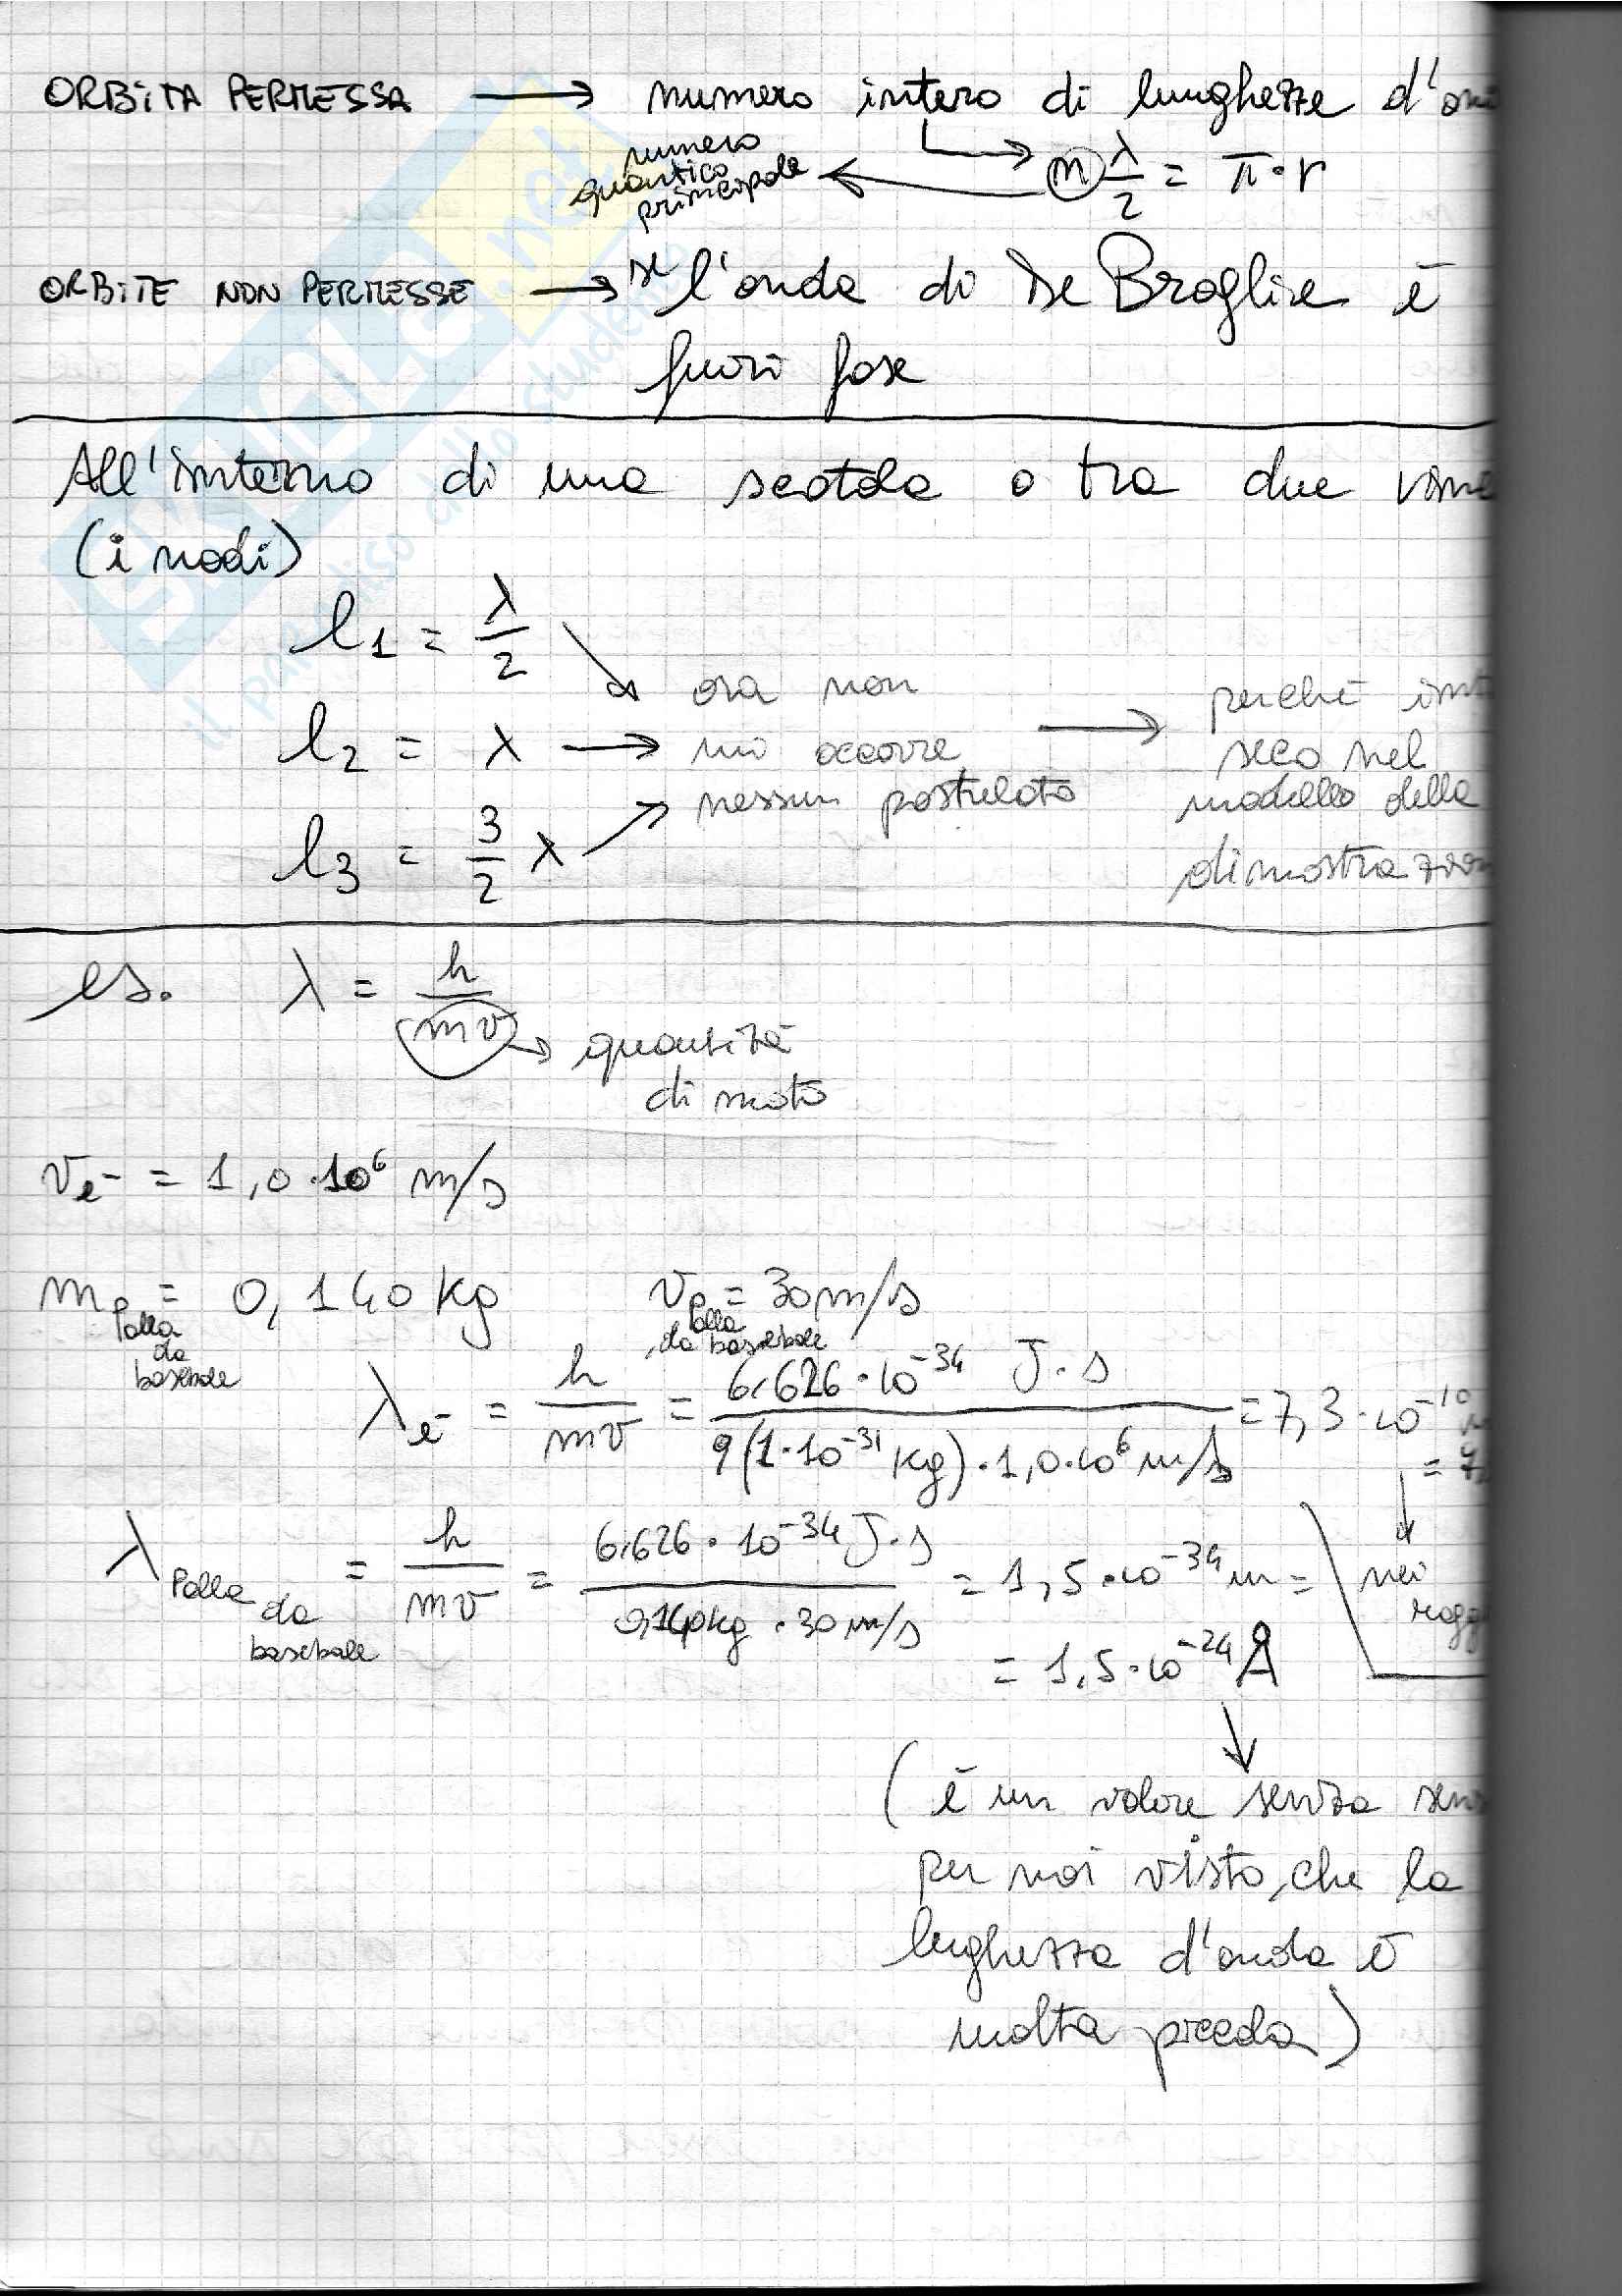 ORBITA PERMESSA → numero intero di lunghezze d'on
numero quantico principale ← n λ/2 = π·r
ORBITE NON PERMESSE → se l'onda di De Broglie è
fuori fase
All'interno di una scatola o tra due
(i nodi)
l1 = λ/2
l2 = λ → ora non mi occorre nessun postulato → perché in seco nel modello della dimostrazion
l3 = 3/2 λ
es. λ = h/mv → quantità
di moto
ve- = 1,0·10^6 m/s
mp = 0,140 kg vp = 30 m/s
Palla da baseball Palla da baseball
λe- = h/mv = 6.626·10^-34 J·s / 9(1·10^-31 kg)·1,0·10^6 m/s = 7,3·10^-10
= 7
λ Palla da baseball = h/mv = 6.626·10^-34 J·s / 0,140kg·30 m/s = 1,5·10^-34 m =
nei
ragg
= 1,5·10^-24 Å
(è un valore senza sen
per noi visto che la
lughezza d'onda è
molta piccola)
SKUOLA.net
il paradiso dello studente